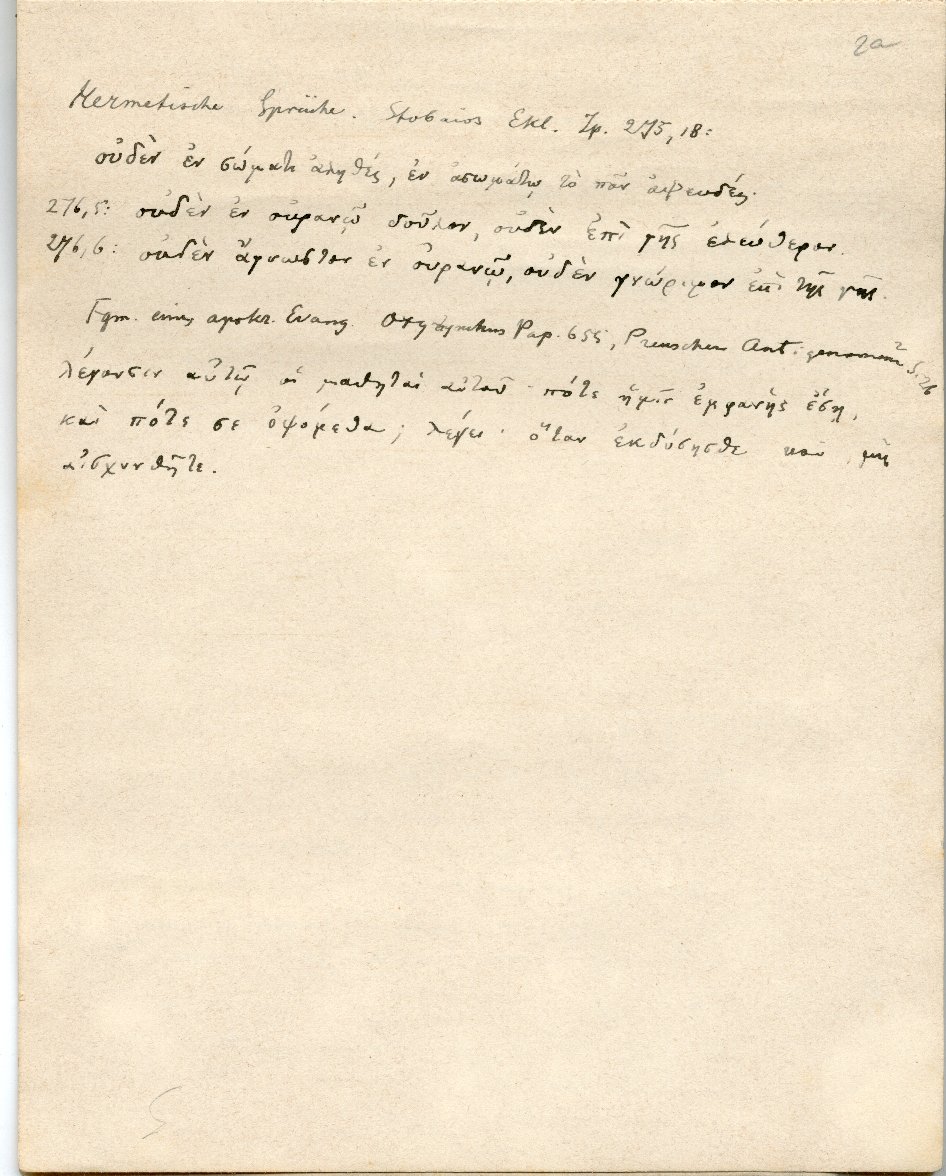 2a
Hermetische Sprüche. Stobaios Ekl. Ip. 275, 18:
οὐδὲν ἐν σώματι ἀληθές, ἐν ἀσωμάτῳ τὸ πᾶν ἀψευδές.
276,5: οὐδὲν ἐν οὐρανῷ δοῦλον, οὐδὲν ἐπὶ γῆς ἐλεύθερον.
276,6: οὐδὲν ἄγνωστον ἐν οὐρανῷ, οὐδὲν γνώριμον ἐπὶ τῆς γῆς.
Fgm. eines apokr. Evang. Pap. 655, Preuschen Antilegomena² S. 26
λέγουσιν αὐτῷ οἱ μαθηταὶ αὐτοῦ · πότε ἡμῖν ἐμφανὴς ἔσῃ,
καὶ πότε σε ὀψόμεθα; λέγει · ὅταν ἐκδύσησθε καὶ μὴ
αἰσχυνθῆτε.